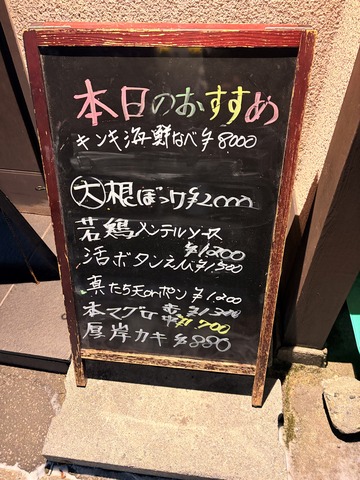 本日のおすすめ
キンキ海鮮なべ ¥8000
大根ぼっけ ¥2000
若鶏メンテルソース
¥1,200
活ボタンえび ¥1,500
真たち天orポン ¥1,200
本マグロ
¥700
厚岸カキ ¥880